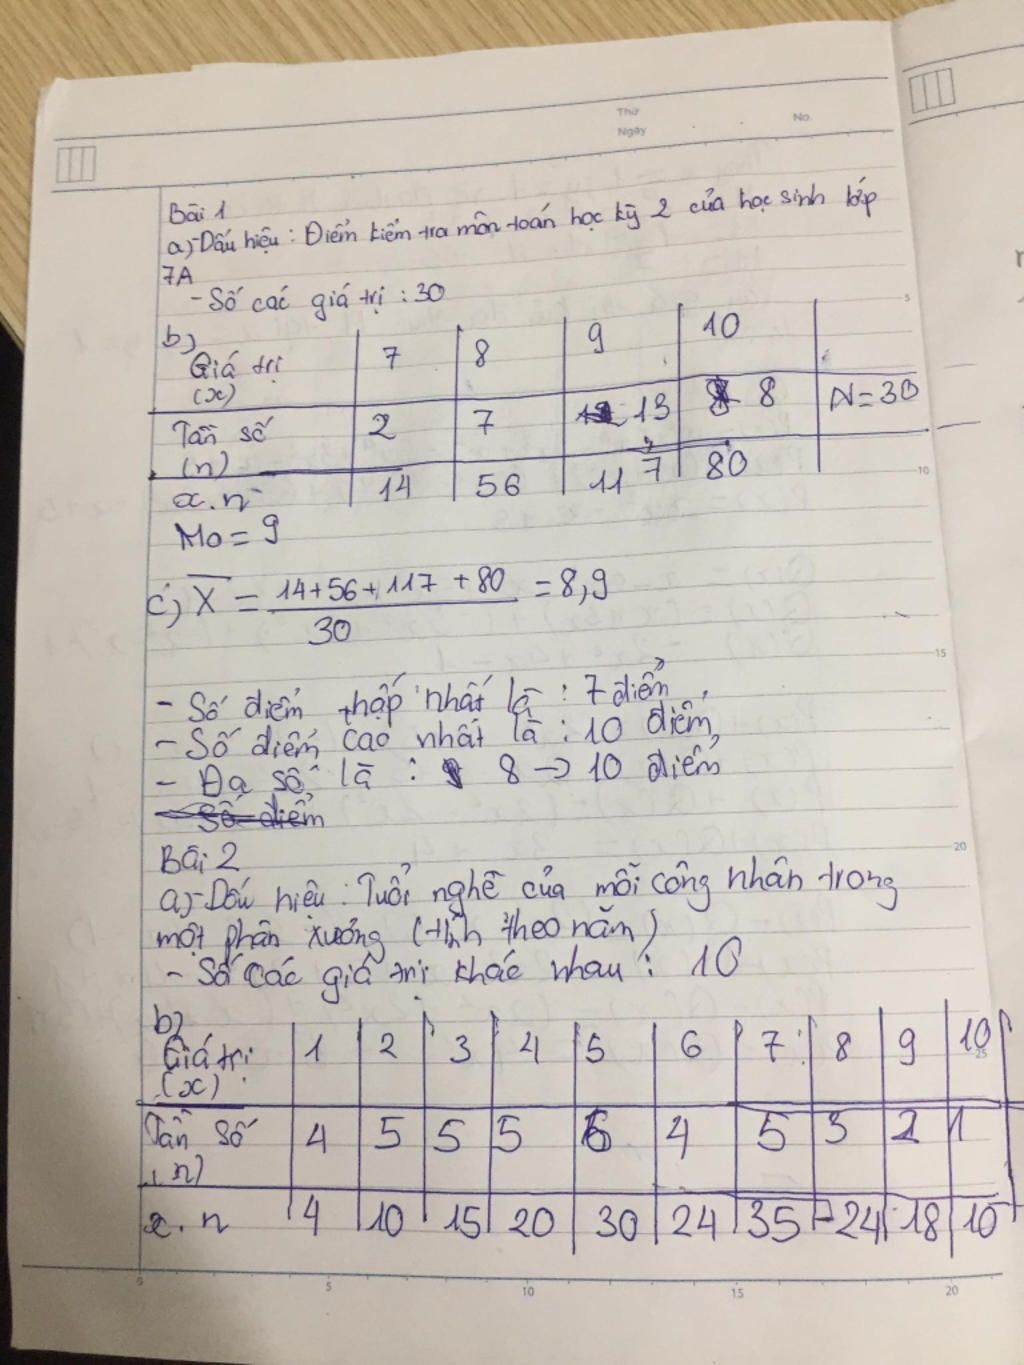 Thứ
Ngày
No.
Bài 1
a)-Dấu hiệu : Điểm kiểm tra môn toán học kỳ 2 của học sinh lớp
7A
- Số các giá trị : 30
b)
Giá trị (x) 7 8 9 10
Tần số (n) 2 7 13 8 N=30
x.n 14 56 117 80
Mo = 9
c) X = 14+56+117+80 / 30 = 8,9
- Số điểm thấp nhất là : 7 điểm,
- Số điểm cao nhất là : 10 điểm,
- Đa số là : 8 -> 10 điểm
Số điểm
Bài 2
a)-Dấu hiệu : Tuổi nghề của mỗi công nhân trong
một phân xưởng (tính theo năm)
- Số các giá trị khác nhau : 10
b)
Giá trị (x) 1 2 3 4 5 6 7 8 9 10
Tần số (n) 4 5 5 5 6 4 5 3 2 1
x.n 4 10 15 20 30 24 35 24 18 10
5
10
15
20
25
0 5 10 15 20